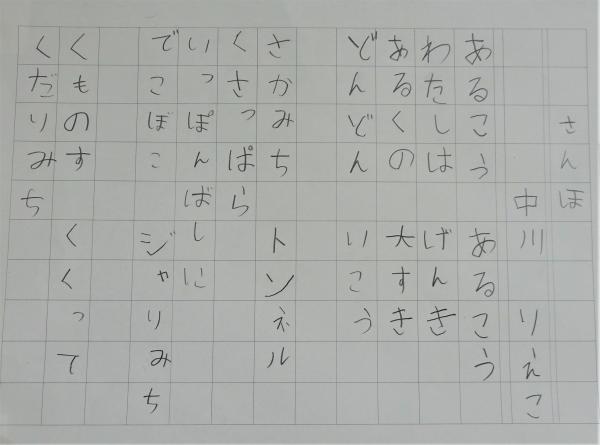 さんほ
中川 りえこ
あるこう あるこう
わたしは げんき
あるくの 大すき
どんどん いこう
さかみち トンネル
くさっぱら
いっぽんばしに
でこぼこ ジャりみち
くものす くくって
くだりみち